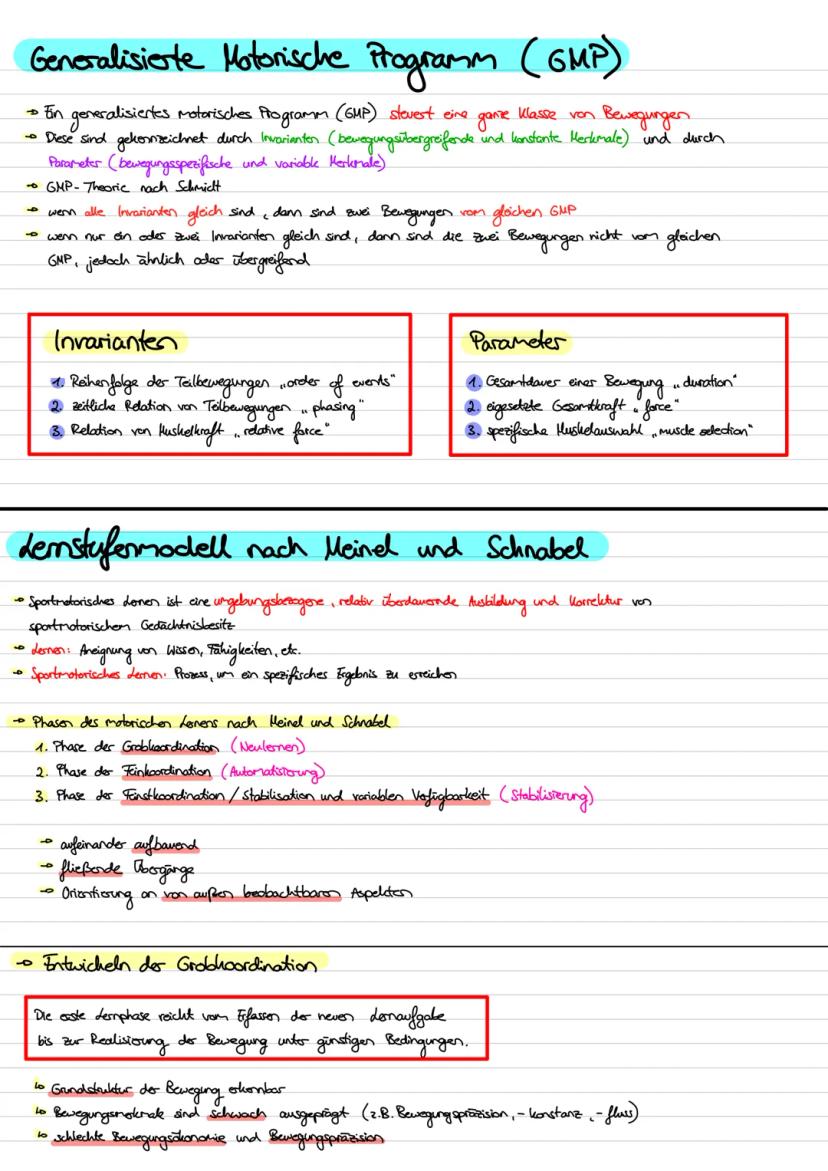 Generalisierte Motorische Programm (GMP)
→ Ein generalisiertes motorisches Programm (GMP) steuert eine ganze Klasse von Bewegungen
→ Diese sind gekennzeichnet durch Invarianten (bewegungsübergreifende und konstante Merkmale) und durch
Parameter (bewegungsspezifische und variable Merkmale)
→ GMP-Theorie nach Schmidt
→ wenn alle Invarianten gleich sind, dann sind zwei Bewegungen vom gleichen GMP
→ wenn nur ein oder zwei Invarianten gleich sind, dann sind die zwei Bewegungen nicht vom gleichen
GMP, jedoch ähnlich oder übergreifend
Invarianten
1. Reihenfolge der Teilbewegungen „order of events"
2. zeitliche Relation von Teilbewegungen „phasing"
3. Relation von Muskelkraft „relative force"
Parameter
1. Gesamtdauer einer Bewegung „duration"
2. eigesetzte Gesamtkraft „force"
3. spezifische Muskelauswahl „muscle selection"
Lernstufenmodell nach Meinel und Schnabel
→ Sportmotorisches Lernen ist eine umgebungsbezogene, relativ überdauernde Ausbildung und Korrektur von
sportmotorischem Gedächtnisbesitz
→ Lernen: Aneignung von Wissen, Fähigkeiten, etc.
→ Sportmotorisches Lernen: Prozess, um ein spezifisches Ergebnis zu erreichen
→ Phasen des motorischen Lernens nach Meinel und Schnabel
1. Phase der Grobkoordination (Neulernen)
2. Phase der Feinkoordination (Automatisierung)
3. Phase der Feinstkoordination / Stabilisation und variablen Verfügbarkeit (Stabilisierung)
→ aufeinander aufbauend
→ fließende Übergänge
→ Orientierung an von außen beobachtbaren Aspekten
→ Entwickeln der Grobkoordination
Die erste Lernphase reicht vom Erfassen der neuen Lernaufgabe
bis zur Realisierung der Bewegung unter günstigen Bedingungen.
↳ Grundstruktur der Bewegung erkennbar
↳ Bewegungsmerkmale sind schwach ausgeprägt (z.B. Bewegungspräzision, -konstanz, -fluss)
↳ schlechte Bewegungsökonomie und Bewegungspräzision